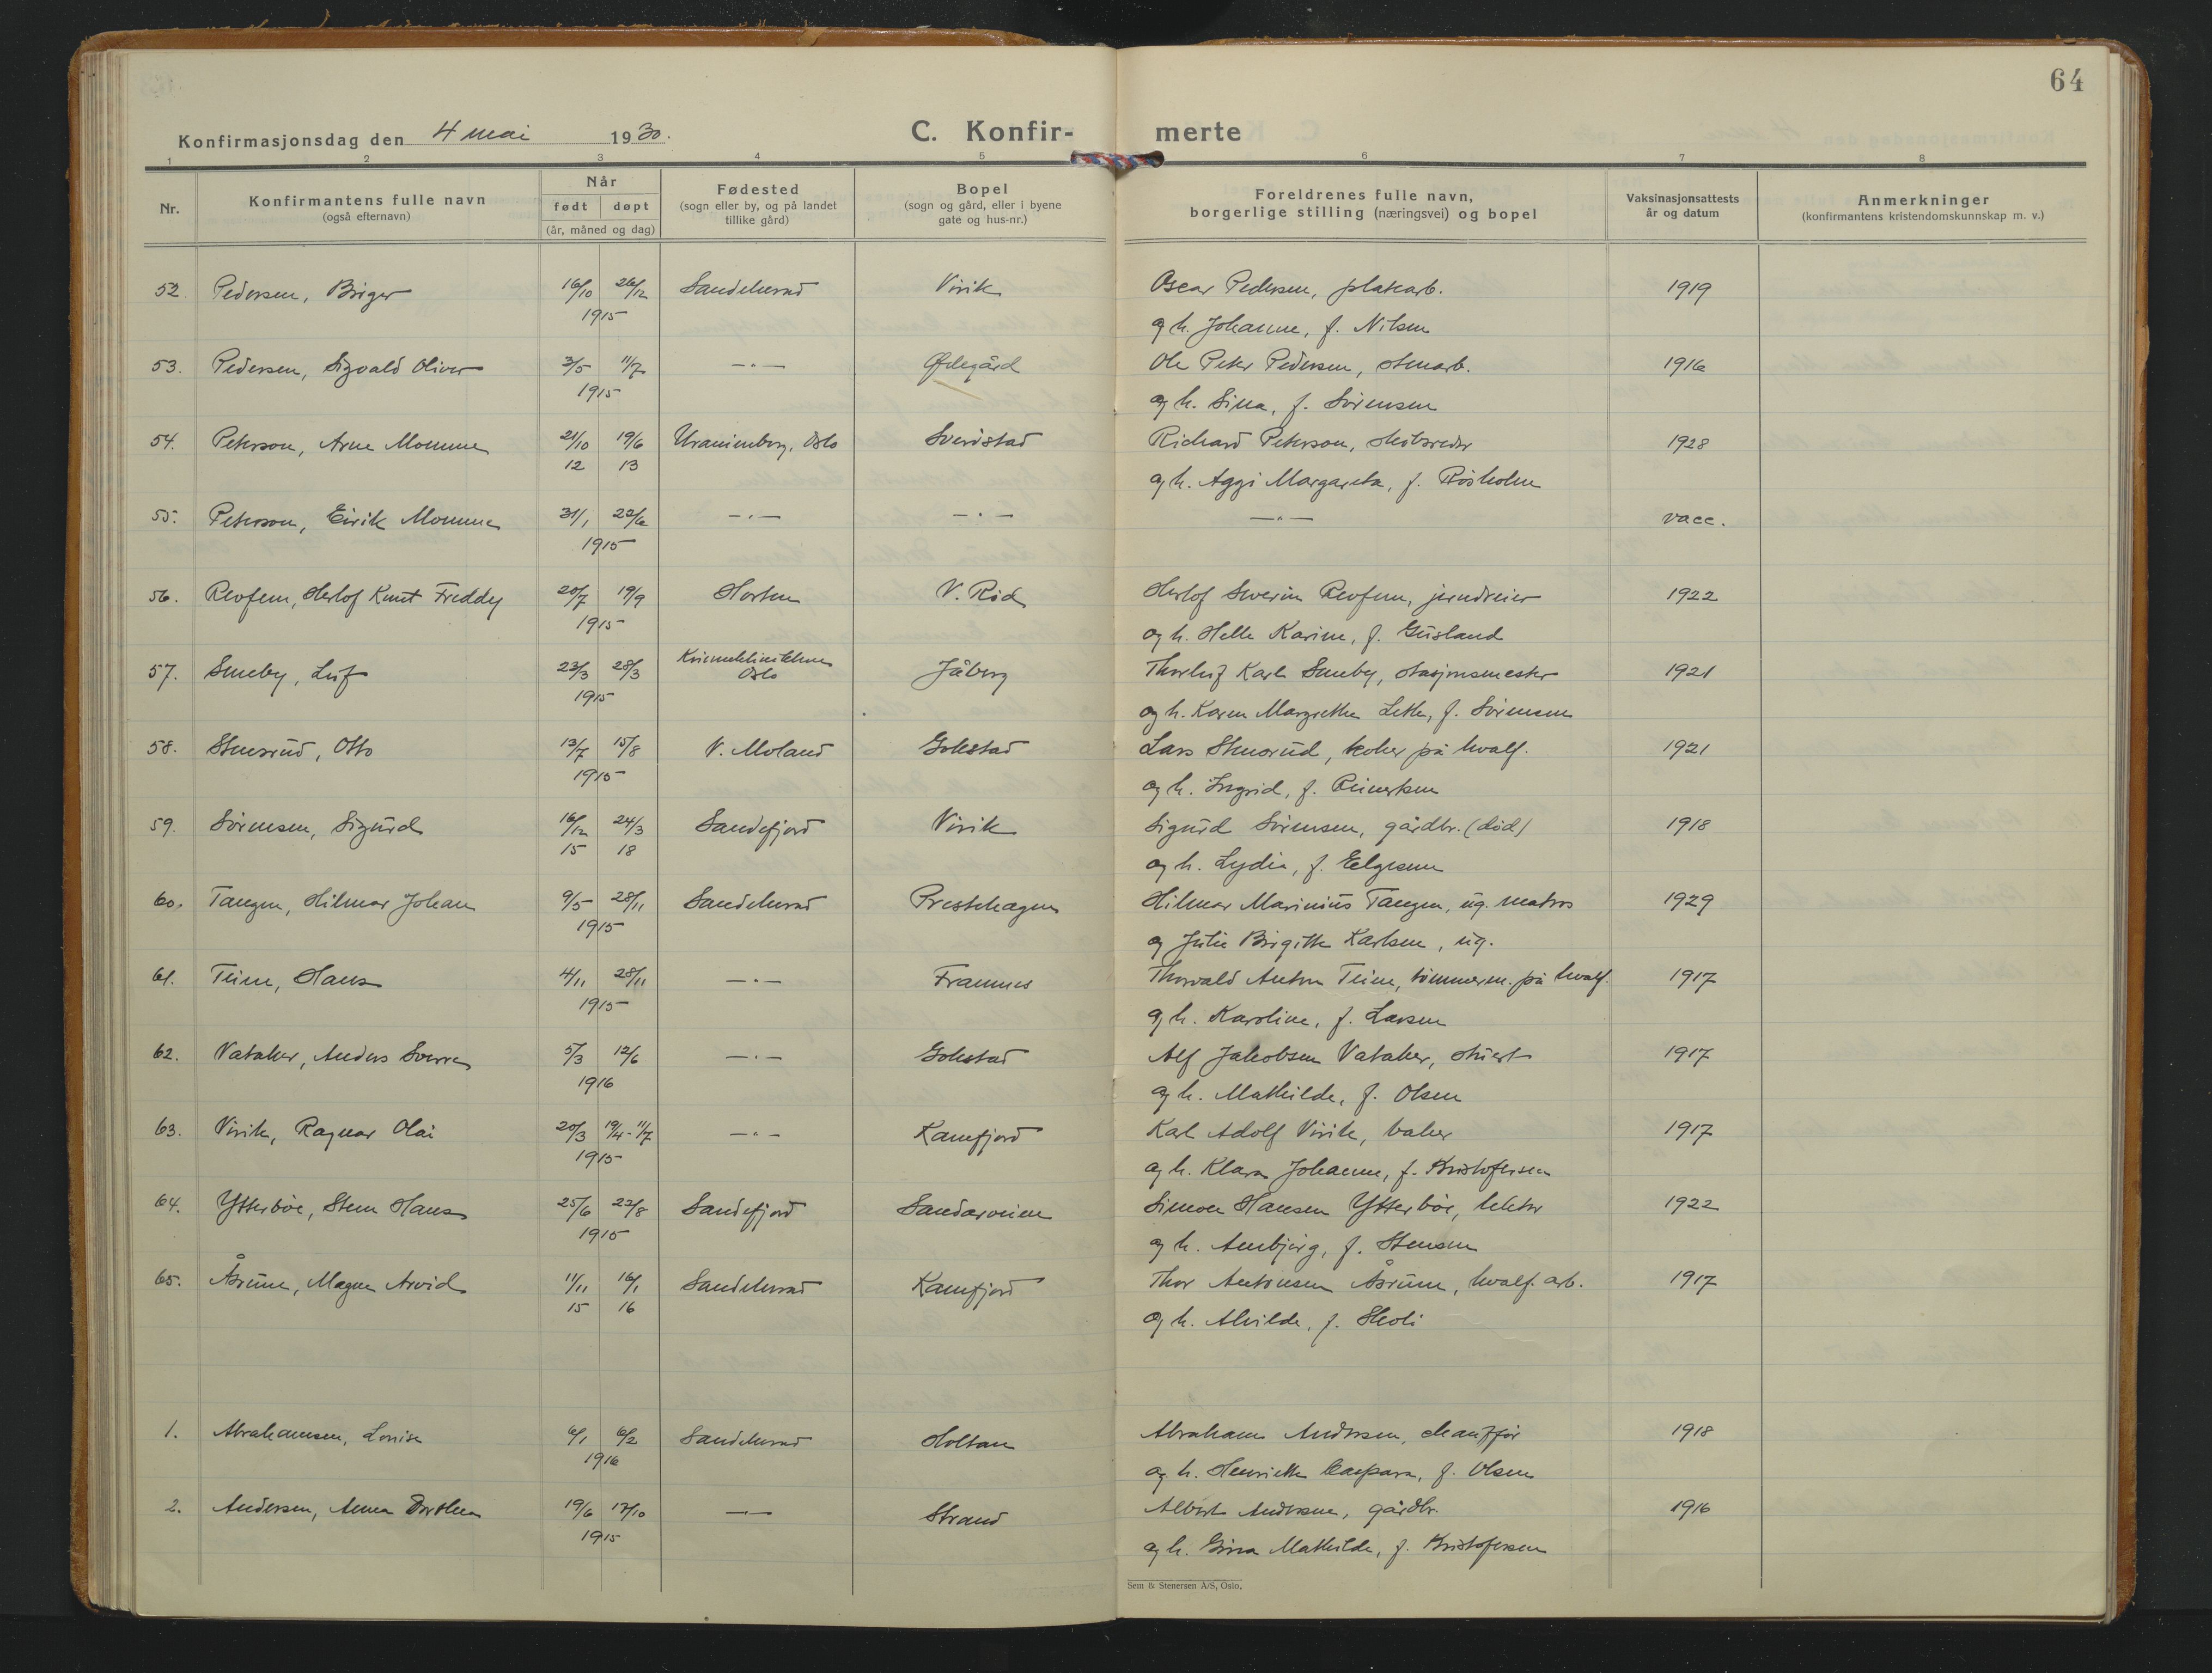 64
Konfirmasjonsdag den 4 mai 1930.
C. Konfir- merte
1 2 3 4 5 6 7 8
Nr.
Konfirmantens fulle navn
(også efternavn)
Når
født døpt
(år, måned og dag)
Fødested
(sogn eller by, og på landet
tillike gård)
Bopel
(sogn og gård, eller i byene
gate og hus-nr.)
Foreldrenes fulle navn,
borgerlige stilling (næringsvei) og bopel
Vaksinasjonsattests
år og datum
Anmerkninger
(konfirmantens kristendomskunnskap m. v.)
52. Pedersen, Birger 16/10 26/12 Sandeherad Virik Oscar Pedersen, platearb. 1919
1915 og h. Johanne, f. Nilsen
53. Pedersen, Sigvald Oliver 3/5 11/7 —"— Ødegård Ole Peter Pedersen, stenarb. 1916
1915 og h. Sina, f. Sörensen
54. Peterson, Arne Momme 21/10 19/6 Uranienborg, Oslo Sverdstad Richard Peterson, skibsreder 1928
12 13 og h. Aggi Margareta, f.
55. Peterson, Eirik Momme 31/1 22/6 —"— —"— —"— vacc.
1915
56. Revfem, Herlof Knut Freddy 20/7 19/9 Horten V. Rød Herlof Severin Revfem, jerndreier 1922
1915 og h. Helle Karine, f. Gusland
57. Smeby, Leif 23/3 28/3 Kvinneklinikken Oslo Jåberg Thorleif Karl Smeby, stasjonsmester 1921
1915 og h. Karen Margrethe Lethe, f. Sörensen
58. Stensrud, Otto 13/7 15/8 V. Moland Gokstad Lars Stensrud, koker på hvalf. 1921
1915 og h. Ingrid, f. Reinertsen
59. Sörensen, Sigurd 16/12 24/3 Sandefjord Virik Sigurd Sörensen, gårdbr. (död) 1918
15 18 og h. Lydia, f.
60. Tangen, Hilmar Johan 9/5 28/11 Sandeherad Prestehagen Hilmar Marinius Tangen, ug. matros 1929
1915 og Julie Birgitte Karlsen, ug.
61. Teien, Hans 4/11 28/11 —"— Framnes Thorvald Anton Teien, tömmerm. på hvalf. 1917
1915 og h. Karoline, f. Larsen
62. Vataker, Anders Sverre 5/3 12/6 —"— Gokstad Alf Jakobsen Vataker, stuert 1917
1916 og h. Mathilde, f. Olsen
63. Virik, Ragnar Olai 20/3 19/4-11/7 —"— Kamfjord Karl Adolf Virik, baker 1917
1915 og h. Klara Johanne, f. Kristofersen
64. Ytterböe, Sten Hans 25/6 22/8 Sandefjord Sandarveien Simon Hansen Ytterböe, lektor 1922
1915 og h. Annbjörg, f. Stensen
65. Åsrum, Magne Arvid 11/11 16/1 Sandeherad Kamfjord Thor Antonsen Åsrum, hvalf. arb. 1917
15 16 og h. Alvilde, f. Skoli
1. Abrahamsen, Lovise 6/1 6/2 Sandeherad Holtan Abraham Andersen, chauffør 1918
1916 og h. Henriette Caspara, f. Olsen
2. Andersen, Anna Dorthea 19/6 17/10 —"— Strand Albert Andersen, gårdbr. 1916
1915 og h. Gina Mathilde, f. Kristofersen
Sem & Stenersen A/S, Oslo.